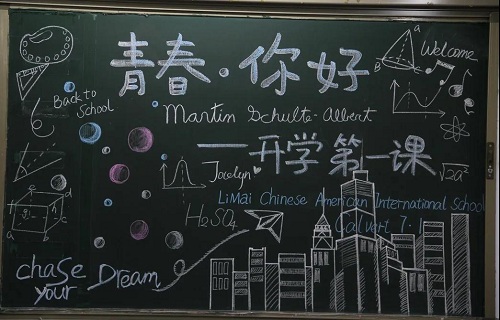 青春·你好
Welcome
Back to
School
Martin Schultz-Albert
一开学第一课
Jocelyn
√2a²
LiMai Chinese American International School
Calvert 7.1
H₂SO₄
chase
your
Dream